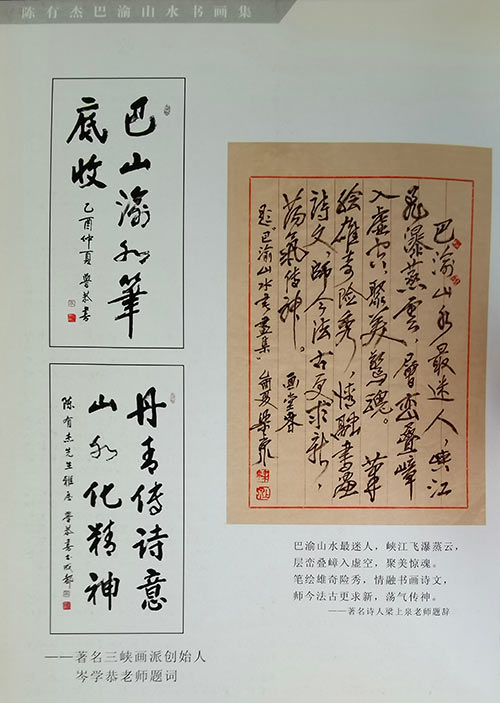 陈有杰巴渝山水书画集
巴山渝水筆
底收
乙酉仲夏 學恭書
丹青傳詩意
山水化精神
陈有杰先生雅 學恭書於成都
巴渝山水最迷人，峡江
飛瀑蒸雲，層峦叠嶂
入虚空，聚美驚魂。筆
绘雄奇险秀，情融書畫
詩文，師今法古更求新，
荡氣传神。
画堂春
题《巴渝山水書畫集》
梁上泉
巴渝山水最迷人，峡江飞瀑蒸云，
层峦叠嶂入虚空，聚美惊魂。
笔绘雄奇险秀，情融书画诗文，
师今法古更求新，荡气传神。
——著名诗人梁上泉老师题辞
——著名三峡画派创始人
岑学恭老师题词